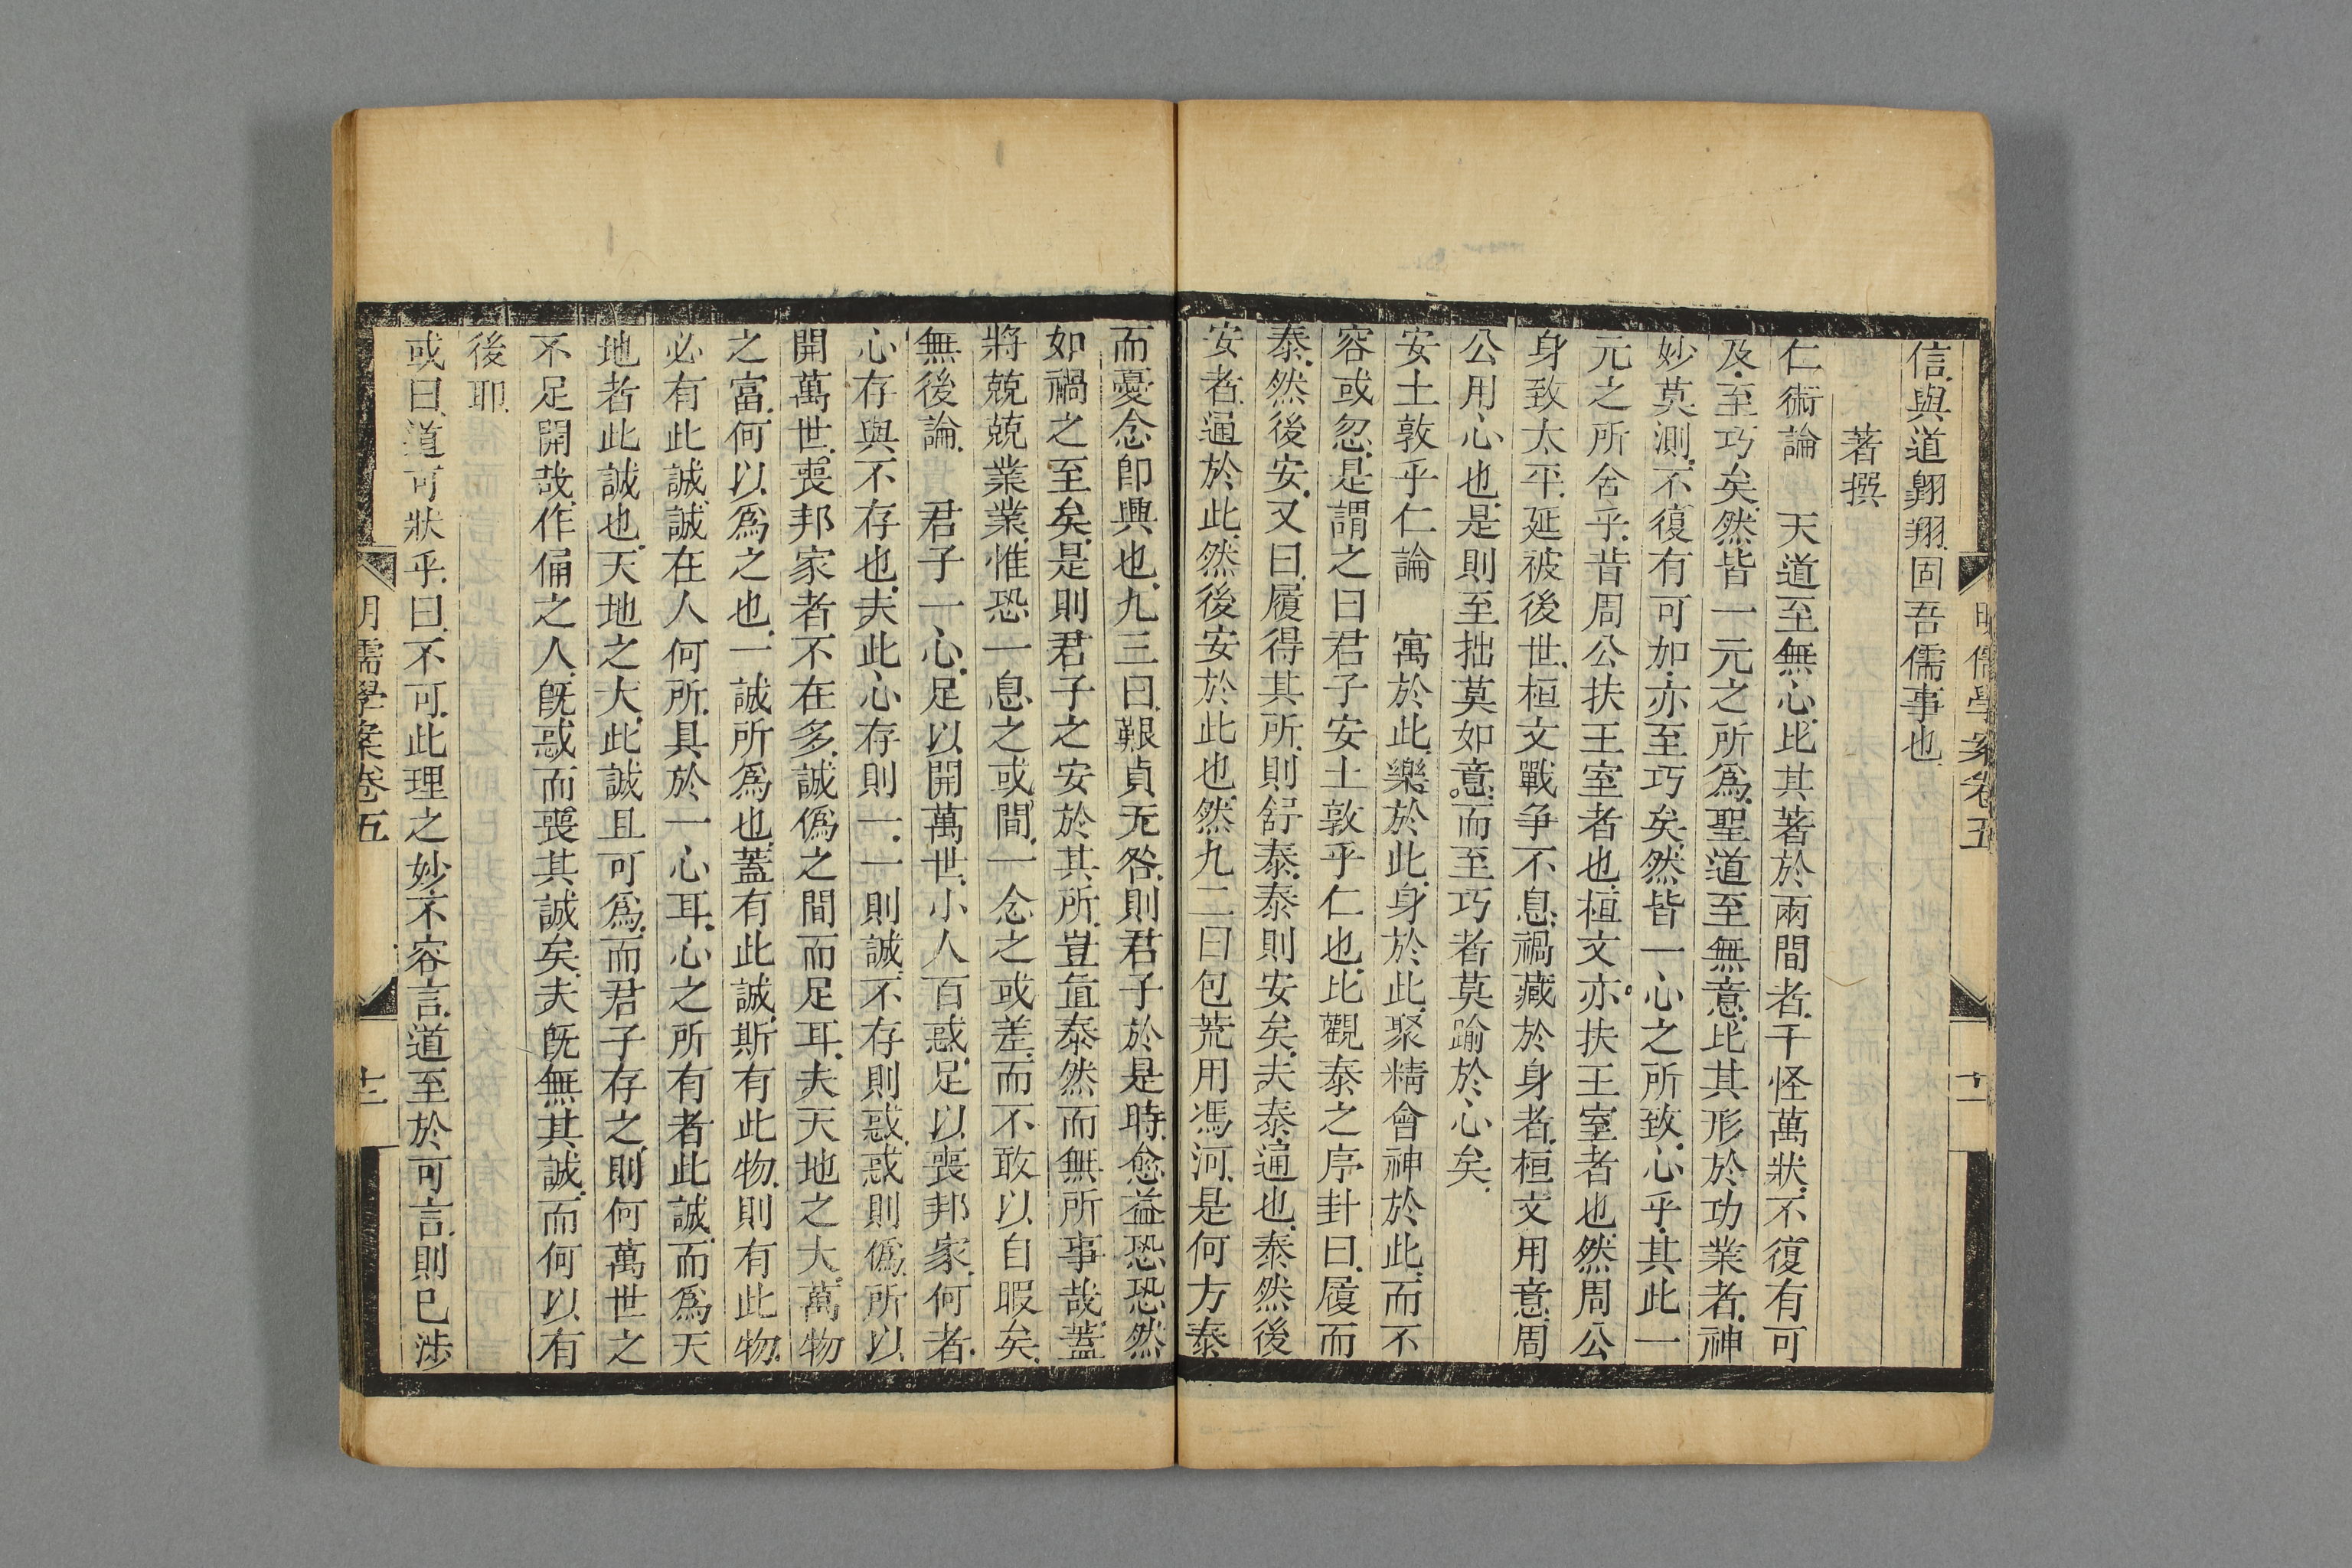 明儒學案卷五
十一
信與道翱翔固吾儒事也
著撰
仁術論 天道至無心比其著於兩間者千怪萬狀不復有可
及至巧矣然皆一元之所爲聖道至無意比其形於功業者神
妙莫測不復有可加亦至巧矣然皆一心之所致心乎其此一
元之所舍乎昔周公扶王室者也桓文亦扶王室者也然周公
身致太平延被後世桓文戰争不息禍藏於身者桓文用意周
公用心也是則至拙莫如意而至巧者莫踰於心矣
安土敦乎仁論 寓於此樂於此身於此聚精會神於此而不
容或忽是謂之曰君子安土敦乎仁也比觀泰之序卦曰履而
泰然後安又曰履得其所則舒泰泰則安矣夫泰通也泰然後
安者通於此然後安於此也然九二曰包荒用馮河是何方泰
而憂念卽興也九三曰艱貞无咎則君子於是時愈益恐恐然
如禍之至矣是則君子之安於其所豈直泰然而無所事哉蓋
將兢兢業業惟恐一息之或間一念之或差而不敢以自暇矣
無後論 君子一心足以開萬世小人百惑足以喪邦家何者
心存與不存也夫此心存則一一則誠不存則惑惑則僞所以
開萬世喪邦家者不在多誠僞之間而足耳夫天地之大萬物
之富何以爲之也一誠所爲也蓋有此誠斯有此物則有此物
必有此誠誠在人何所具於一心耳心之所有者此誠而爲天
地者此誠也天地之大此誠且可爲而君子存之則何萬世之
不足開哉作俑之人旣惑而喪其誠矣夫旣無其誠而何以有
後耶
或曰道可狀乎曰不可此理之妙不容言道至於可言則已涉
明儒學案卷五
十二